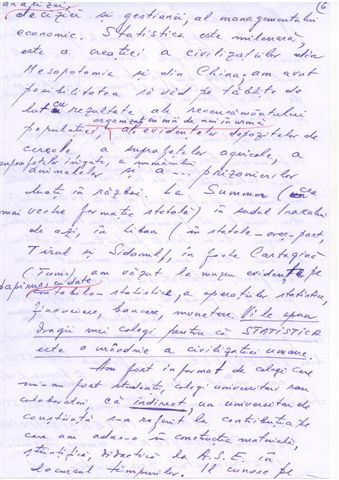 analizei, 6
deciziei și gestiunii, al managementului
economic. Statistica este milenară,
este o creație a civilizațiilor din
Mesopotamia și din China; am avut
posibilitatea să văd pe tăblițe de
lut cu rezultate ale recensământului
organizat cu mă de ani în urmă
populației, ale evidențelor depozitelor de
cereale, a suprafețelor agricole, a
suprafețelor irigate, a numărului
animalelor și a... prizonierilor
luați în război. La Summer (cea
mai veche formație statală) în sudul Irakului
de azi, în Liban (în statele-oraș-port
Tirul și Sidonul), în fosta Cartagină
(Tunis), am văzut la muzeu evidența pe
papirus, cu date
statistice, a operațiilor statistice,
financiare, bancare, monetare. Vi le spun
dragii mei colegi pentru că STATISTICA
este o mândrie a civilizației umane.
Am fost informat de colegi care
mi-au fost studenți, colegi universitari sau
colaboratori, că indirect, un universitar de
conștiință s-a referit la contribuția pe
care am adus-o în construcția materială,
științifică, didactică la A.S.E. în
decursul timpurilor. Îl cunosc pe